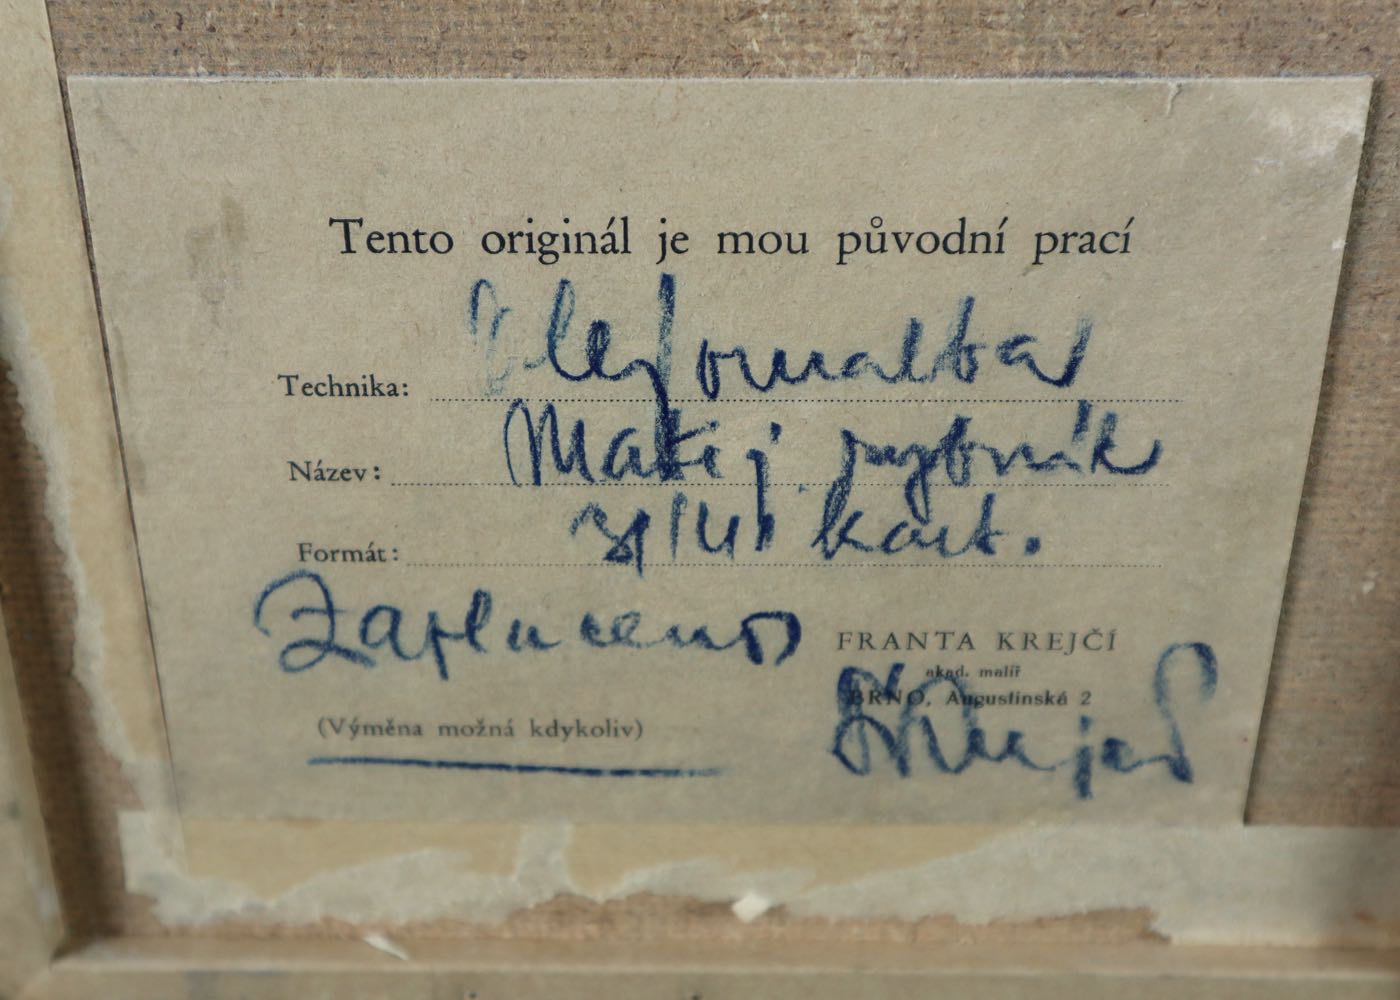 Tento originál je mou původní prací
Technika: Olejomalba
Název: Matěj. rybník
Formát: 31/41 kart.
Zaplaceno
FRANTA KREJČÍ
akad. malíř
BRNO, Augustinská 2
(Výměna možná kdykoliv)